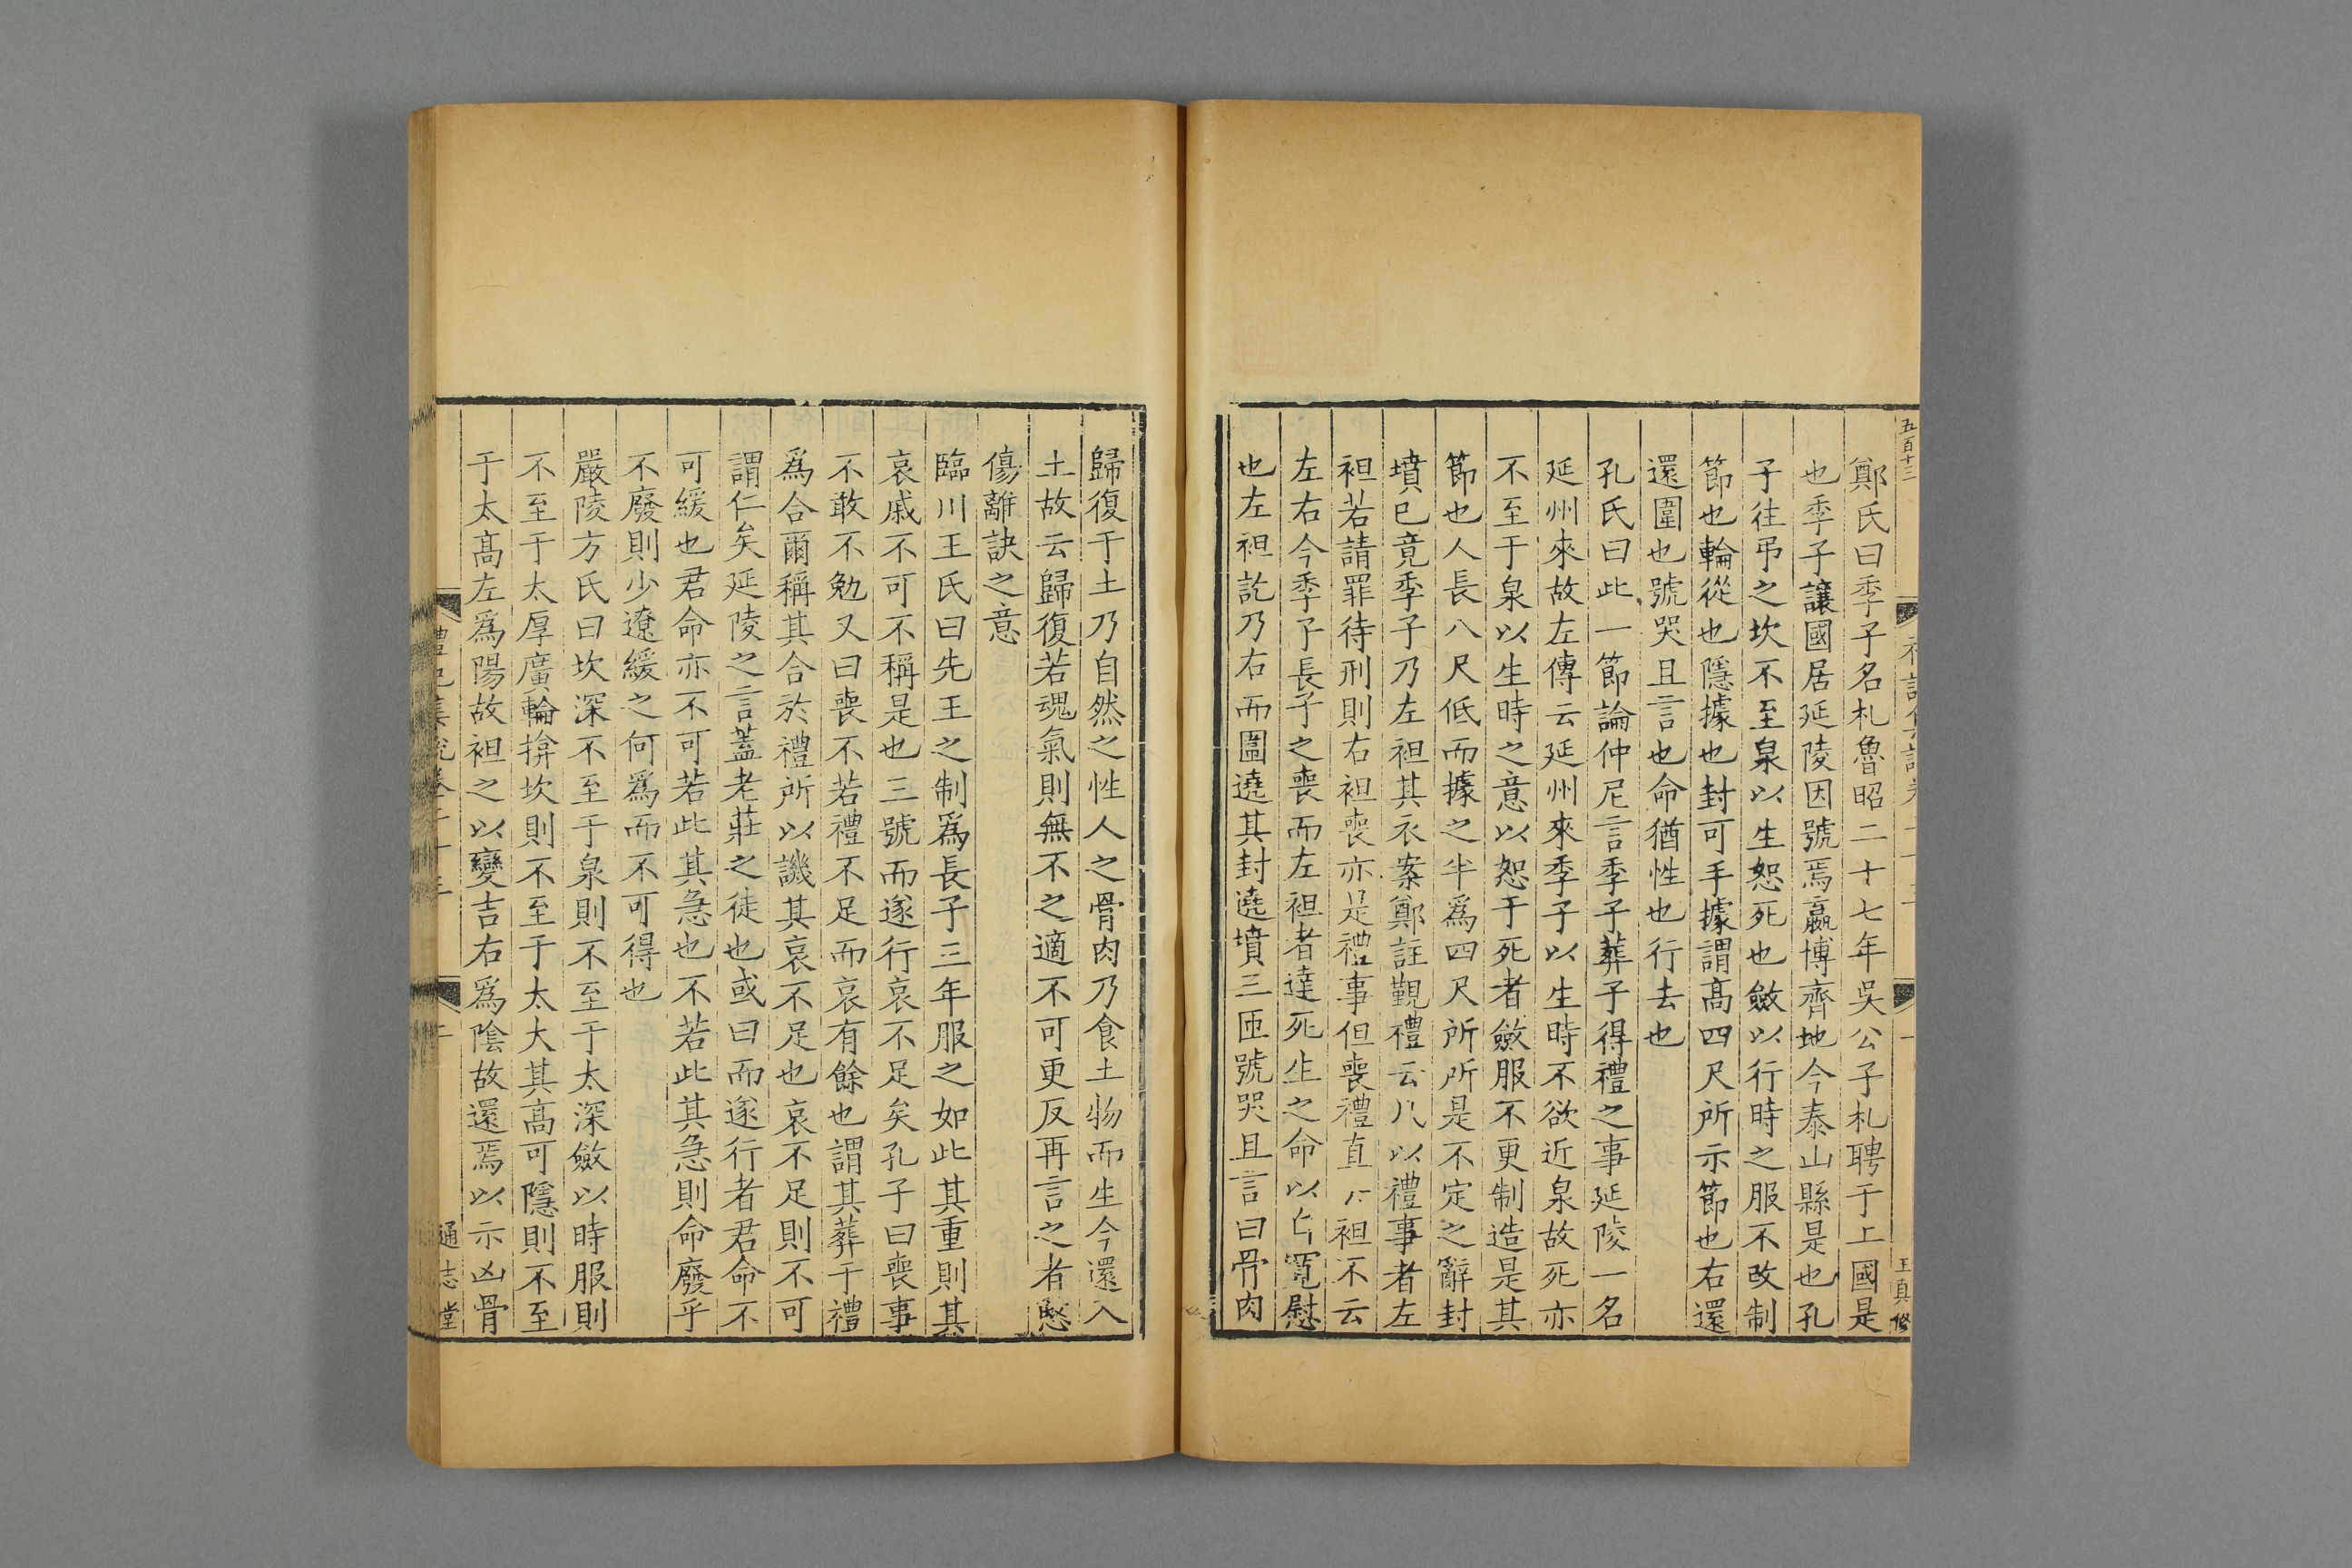 五百十三
王真修
鄭氏曰季子名札魯昭二十七年吳公子札聘于上國是
也季子讓國居延陵因號焉嬴博齊地今泰山縣是也孔
子往弔之坎不至泉以生恕死也斂以行時之服不改制
節也輪從也隱據也封可手據謂髙四尺所示節也右還
還圍也號哭且言也命猶性也行去也
孔氏曰此一節論仲尼言季子葬子得禮之事延陵一名
延州來故左傳云延州來季子以生時不欲近泉故死亦
不至于泉以生時之意以恕于死者斂服不更制造是其
節也人長八尺低而據之半爲四尺所所是不定之辭封
墳已竟季子乃左袒其衣案鄭註覲禮云凡以禮事者左
袒若請罪待刑則右袒喪亦是禮事但喪禮直 袒不云
左右今季子長子之喪而左袒者達死生之命以 寬慰
也左袒訖乃右而圍遶其封遶墳三匝號哭且言曰骨肉
歸復于土乃自然之性人之骨肉乃食土物而生今還入
土故云歸復若魂氣則無不之適不可更反再言之者愍
傷離訣之意
臨川王氏曰先王之制爲長子三年服之如此其重則其
哀戚不可不稱是也三號而遂行哀不足矣孔子曰喪事
不敢不勉又曰喪不若禮不足而哀有餘也謂其葬于禮
爲合爾稱其合於禮所以譏其哀不足也哀不足則不可
謂仁矣延陵之言蓋老莊之徒也或曰而遂行者君命不
可緩也君命亦不可若此其急也不若此其急則命廢乎
不廢則少遼緩之何爲而不可得也
嚴陵方氏曰坎深不至于泉則不至于太深斂以時服則
不至于太厚廣輪揜坎則不至于太大其高可隱則不至
于太髙左爲陽故袒之以變吉右爲陰故還焉以示凶骨
禮記集說卷二十三
通志堂